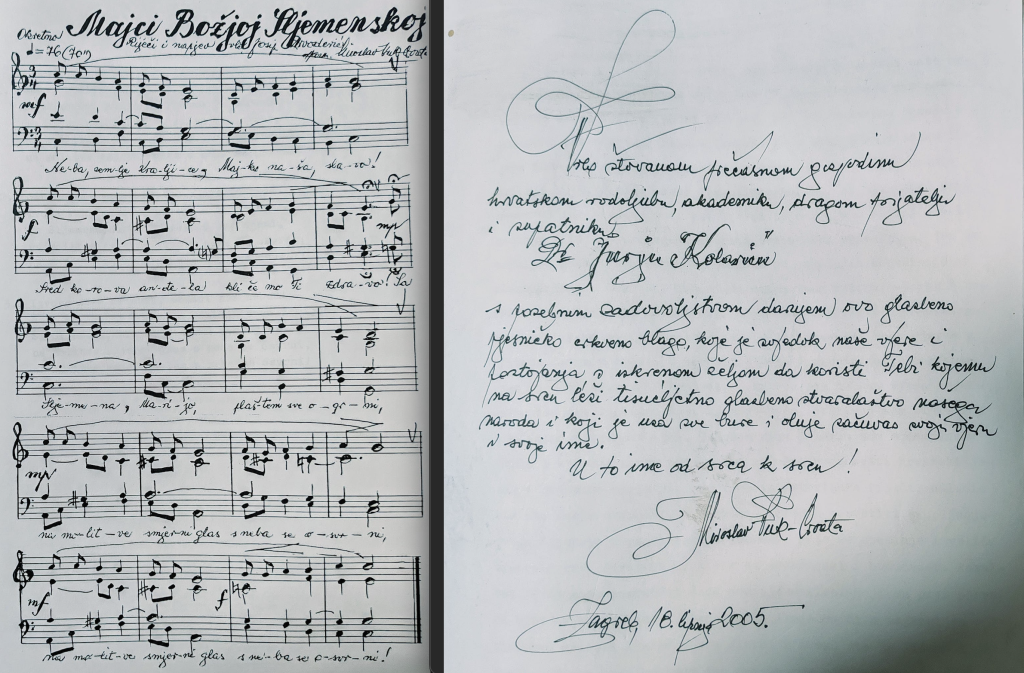 Majci Božjoj Sljemenskoj
Okretno
♩=76(70")
Riječi i napjev vlč. Josip
Miroslav Vuk-Croata
mf
Ne-ba, zem-lje Kra-lji-ce, Maj-ko na-ša, sla-va!
f
mp
Pred ko-ro-va an-đe-la kli-če-mo Ti zdra-vo! Sa
Slje-me-na, Ma-ri-jo, plaš-tem sve o-gr-ni,
mp
na mo-lit-ve smjerni glas s neba se o-svr-ni,
mf
f
na mo-lit-ve smjerni glas s ne-ba se o-svr-ni!
Vrlo štovanom prečasnom gospodinu
hrvatskom rodoljubu, akademiku, dragom prijatelju
i supatniku
Dr Jurju Kolariću
s posebnim zadovoljstvom darujem ovo glasbeno
pjesničko crkveno blago, koje je svjedok naše vjere i
postojanja s iskrenom željom da koristi Tebi kojemu
na srcu leži tisućljetno glasbeno stvaralaštvo našega
naroda i koji je uza sve bure i oluje sačuvao svoju vjeru
i svoje ime.
U to ime od srca k srcu!
Miroslav Vuk-Croata
Zagreb, 18. lipnja 2005.